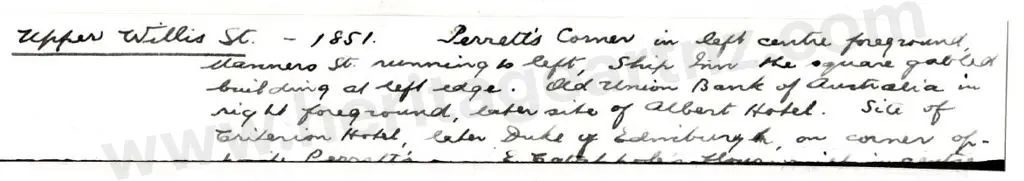 Upper Willis St. - 1851. Perrett's Corner in left centre foreground,
Manners St. running to left, Ship Inn the square gabled
building at left edge. Old Union Bank of Australia in
right foreground, later site of Albert Hotel. Site of
Criterion Hotel, later Duke of Edinburgh, on corner op-
Perrett's
www.heritageartnz.com